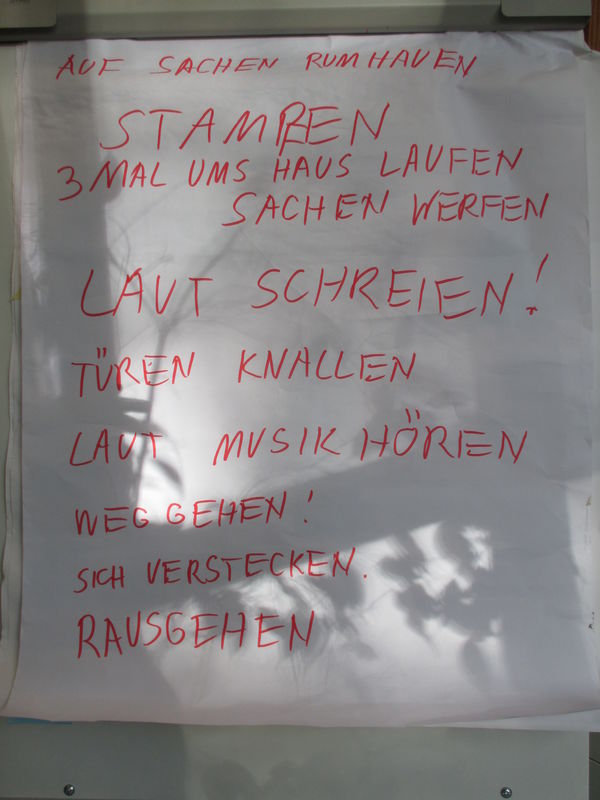 AUF SACHEN RUMHAUEN
STAMPFEN
3 MAL UMS HAUS LAUFEN
SACHEN WERFEN
LAUT SCHREIEN!
TÜREN KNALLEN
LAUT MUSIK HÖREN
WEG GEHEN!
SICH VERSTECKEN.
RAUSGEHEN